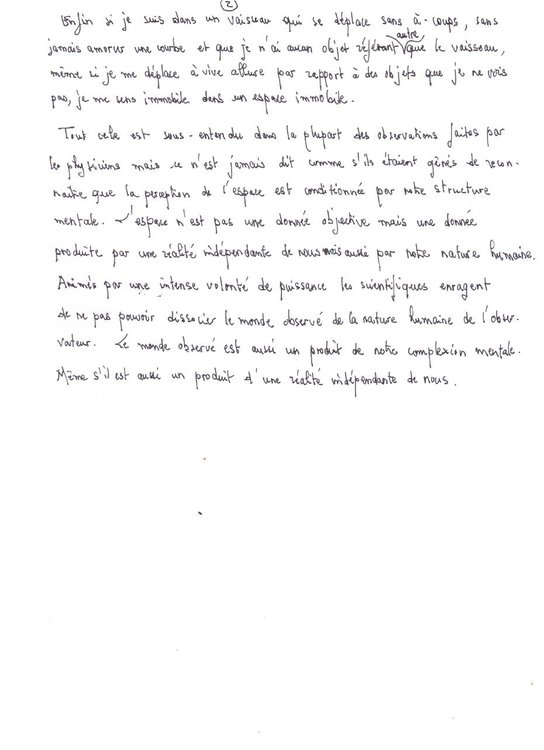 2
Enfin si je suis dans un vaisseau qui se déplace sans à-coups, sans
jamais amorcer une courbe et que je n'ai aucun objet référant autre que le vaisseau,
même si je me déplace à vive allure par rapport à des objets que je ne vois
pas, je me sens immobile dans un espace immobile.
Tout cela est sous-entendu dans la plupart des observations faites par
les physiciens mais ce n'est jamais dit comme s'ils étaient gênés de recon-
naître que la perception de l'espace est conditionnée par notre structure
mentale. L'espace n'est pas une donnée objective mais une donnée
produite par une réalité indépendante de nous mais aussi par notre nature humaine.
Animés par une intense volonté de puissance les scientifiques enragent
de ne pas pouvoir dissocier le monde observé de la nature humaine de l'obser-
vateur. Le monde observé est aussi un produit de notre complexion mentale.
Même s'il est aussi un produit d'une réalité indépendante de nous.